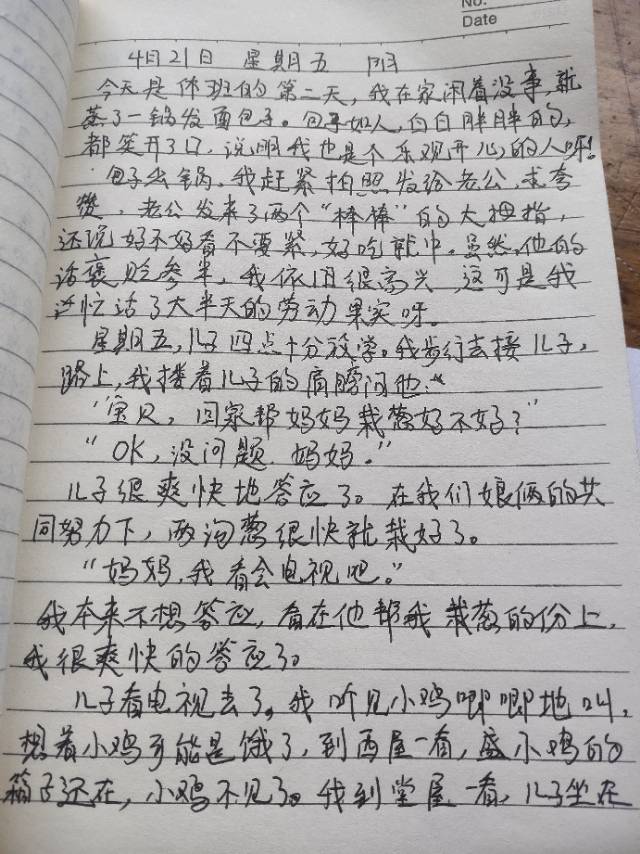 No.
Date
4月21日 星期五 阴
今天是休班的第二天,我在家闲着没事,就
蒸了一锅发面包子。包子如人,白白胖胖的,
都笑开了口,说明我也是个乐观开心的人呀!
包子出锅,我赶紧拍照发给老公,求夸
赞,老公发来了两个“棒棒”的大拇指,
还说好不好看不要紧,好吃就中。虽然,他的
话褒贬参半,我依旧很高兴,这可是我
忙活了大半天的劳动果实呀。
星期五,儿子四点十分放学。我步行去接儿子,
路上,我搂着儿子的肩膀问他:
“宝贝,回家帮妈妈栽葱好不好?”
“OK,没问题,妈妈。”
儿子很爽快地答应了。在我们娘俩的共
同努力下,两沟葱很快就栽好了。
“妈妈,我看会电视吧。”
我本来不想答应,看在他帮我栽葱的份上,
我很爽快的答应了。
儿子看电视去了,我听见小鸡唧唧地叫,
想着小鸡可能是饿了,到西屋一看,盛小鸡的
箱子还在,小鸡不见了。我到堂屋一看,儿子坐在